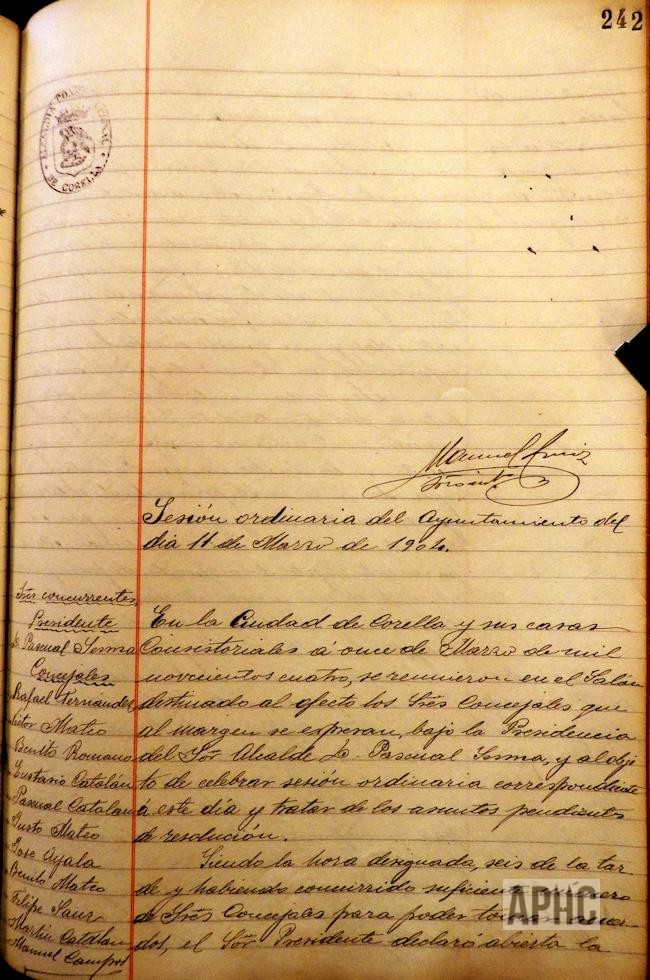 242
ALCALDIA CONSTITUCIONAL
DE CORELLA
Manuel
Sesión ordinaria del Ayuntamiento del
dia 11 de Marzo de 1904.
Sres concurrentes
Presidente
D. Pascual Sesma
Concejales
Rafael Fernandez
Victor Mateo
Benito Romano
Eustasio Catalán
Pascual Catalan
Justo Mateo
Jose Ayala
Benito Mateo
Felipe Sanz
Martin Catalan
Manuel Campos
En la Ciudad de Corella y sus casas
Consistoriales á once de Marzo de mil
novecientos cuatro, se reunieron en el Salón
destinado al efecto los Sres Concejales que
al margen se expresan, bajo la Presidencia
del Sor Alcalde D. Pascual Sesma, y al obje
to de celebrar sesión ordinaria correspondiente
á este día y tratar de los asuntos pendientes
de resolución.
Siendo la hora designada, seis de la tar
de y habiendo concurrido suficiente número
de Sres Concejales para poder tomar acuer
dos, el Sor Presidente declaró abierta la
APHC